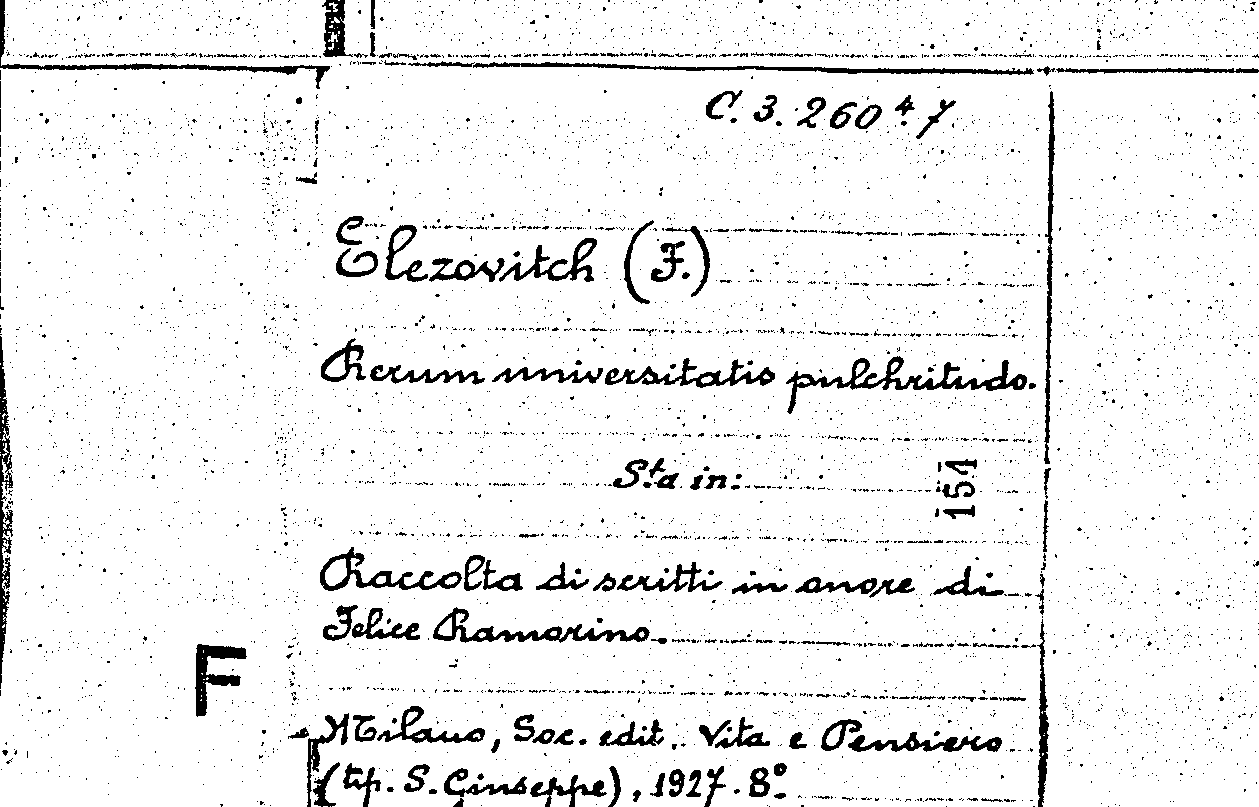 C. 3. 260 4. 7
Elezovitch (F.)
Rerum universitatis pulchritudo.
Sta in:
151
Raccolta di scritti in onore di
Felice Ramorino.
F
Milano, Soc. edit. Vita e Pensiero
(tip. S. Giuseppe), 1927. 8º